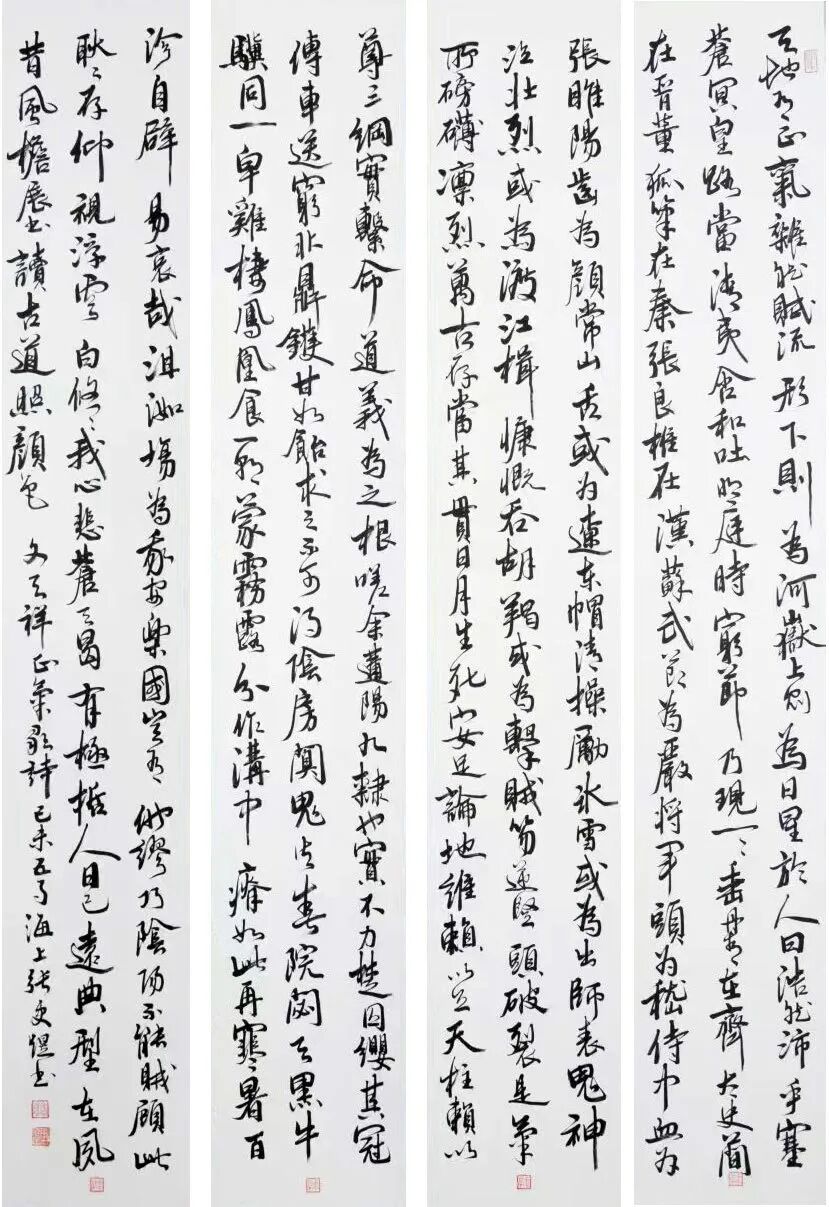 天地有正氣雜然賦流形下則為河嶽上則為日星於人曰浩然沛乎塞
蒼冥皇路當清夷含和吐明庭時窮節乃現一〻垂丹青在齊太史簡
在晉董狐筆在秦張良椎在漢蘇武節為嚴將軍頭為嵇侍中血為
張睢陽齒為顏常山舌或為遼東帽清操勵冰雪或為出師表鬼神
泣壯烈或為渡江楫慷慨吞胡羯或為擊賊笏逆豎頭破裂是氣
所磅礴凛烈萬古存當其貫日月生死安足論地維賴以立天柱賴以
尊三綱實繫命道義為之根嗟余遘陽九隸也實不力楚囚纓其冠
傳車送窮北鼎鑊甘如飴求之不可得陰房闃鬼火春院閟天黑牛
驥同一皁雞棲鳳凰食一朝蒙霧露分作溝中瘠如此再寒暑百
沴自辟易哀哉沮洳場為我安樂國豈有他繆巧陰陽不能賊顧此
耿〻存仰視浮雲白悠〻我心悲蒼天曷有極哲人日已遠典型在夙
昔風檐展書讀古道照顏色 文天祥正氣歌詩 己未五月海上張書